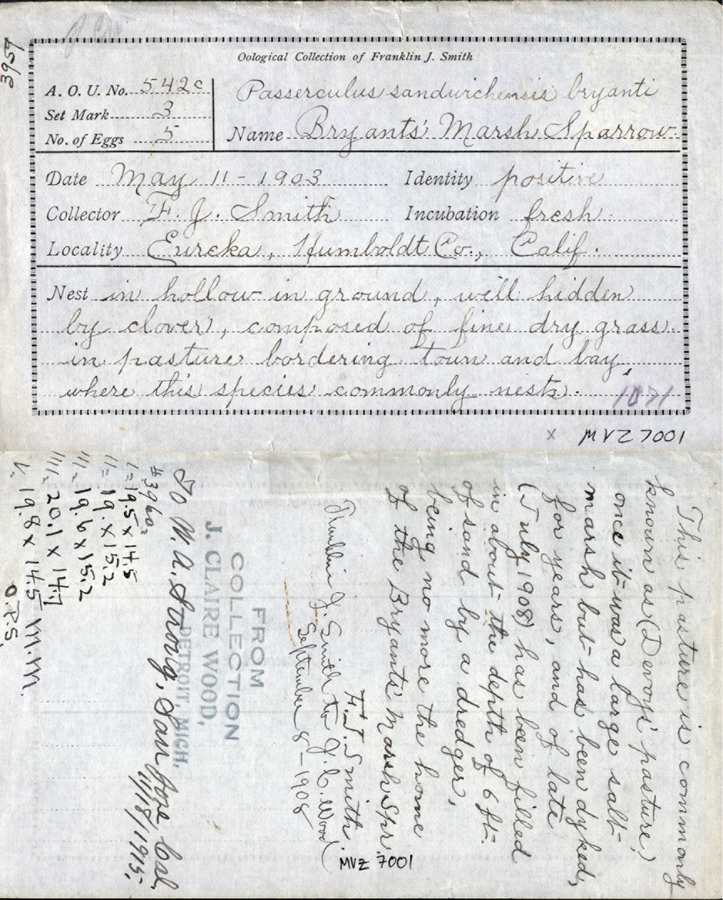 3959
Oological Collection of Franklin J. Smith
A. O. U. No. 542c
Set Mark 3
No. of Eggs 5
Passerculus sandwichensis bryanti
Name Bryants' Marsh Sparrow.
Date May 11 - 1903 Identity positive
Collector F. J. Smith Incubation fresh.
Locality Eureka, Humboldt Co., Calif.
Nest in hollow in ground, well hidden
by clover, composed of fine dry grass
in pasture bordering town and bay,
where this species commonly nests.
1071
x MVZ 7001
This pasture is commonly
known as (Devoy's pasture)
once it was a large salt-
marsh but has been dyked,
for years, and of late
(July 1908) has been filled
in about the depth of 6 ft.
of sand by a dredger,
being no more the home
of the Bryants' Marsh Spr.
F. J. Smith.
Franklin J. Smith to J. C. Wood
September 8 - 1908
MVZ 7001
FROM
COLLECTION
J. CLAIRE WOOD,
DETROIT, MICH.
To W. A. Strong, San Jose Cal,
11/18/1915.
#3960a
I - 19.5 x 14.5
II - 19. x 15.2
III - 19.6 x 15.2
IIII - 20.1 x 14.7
V. 19.8 x 14.5 M.M.